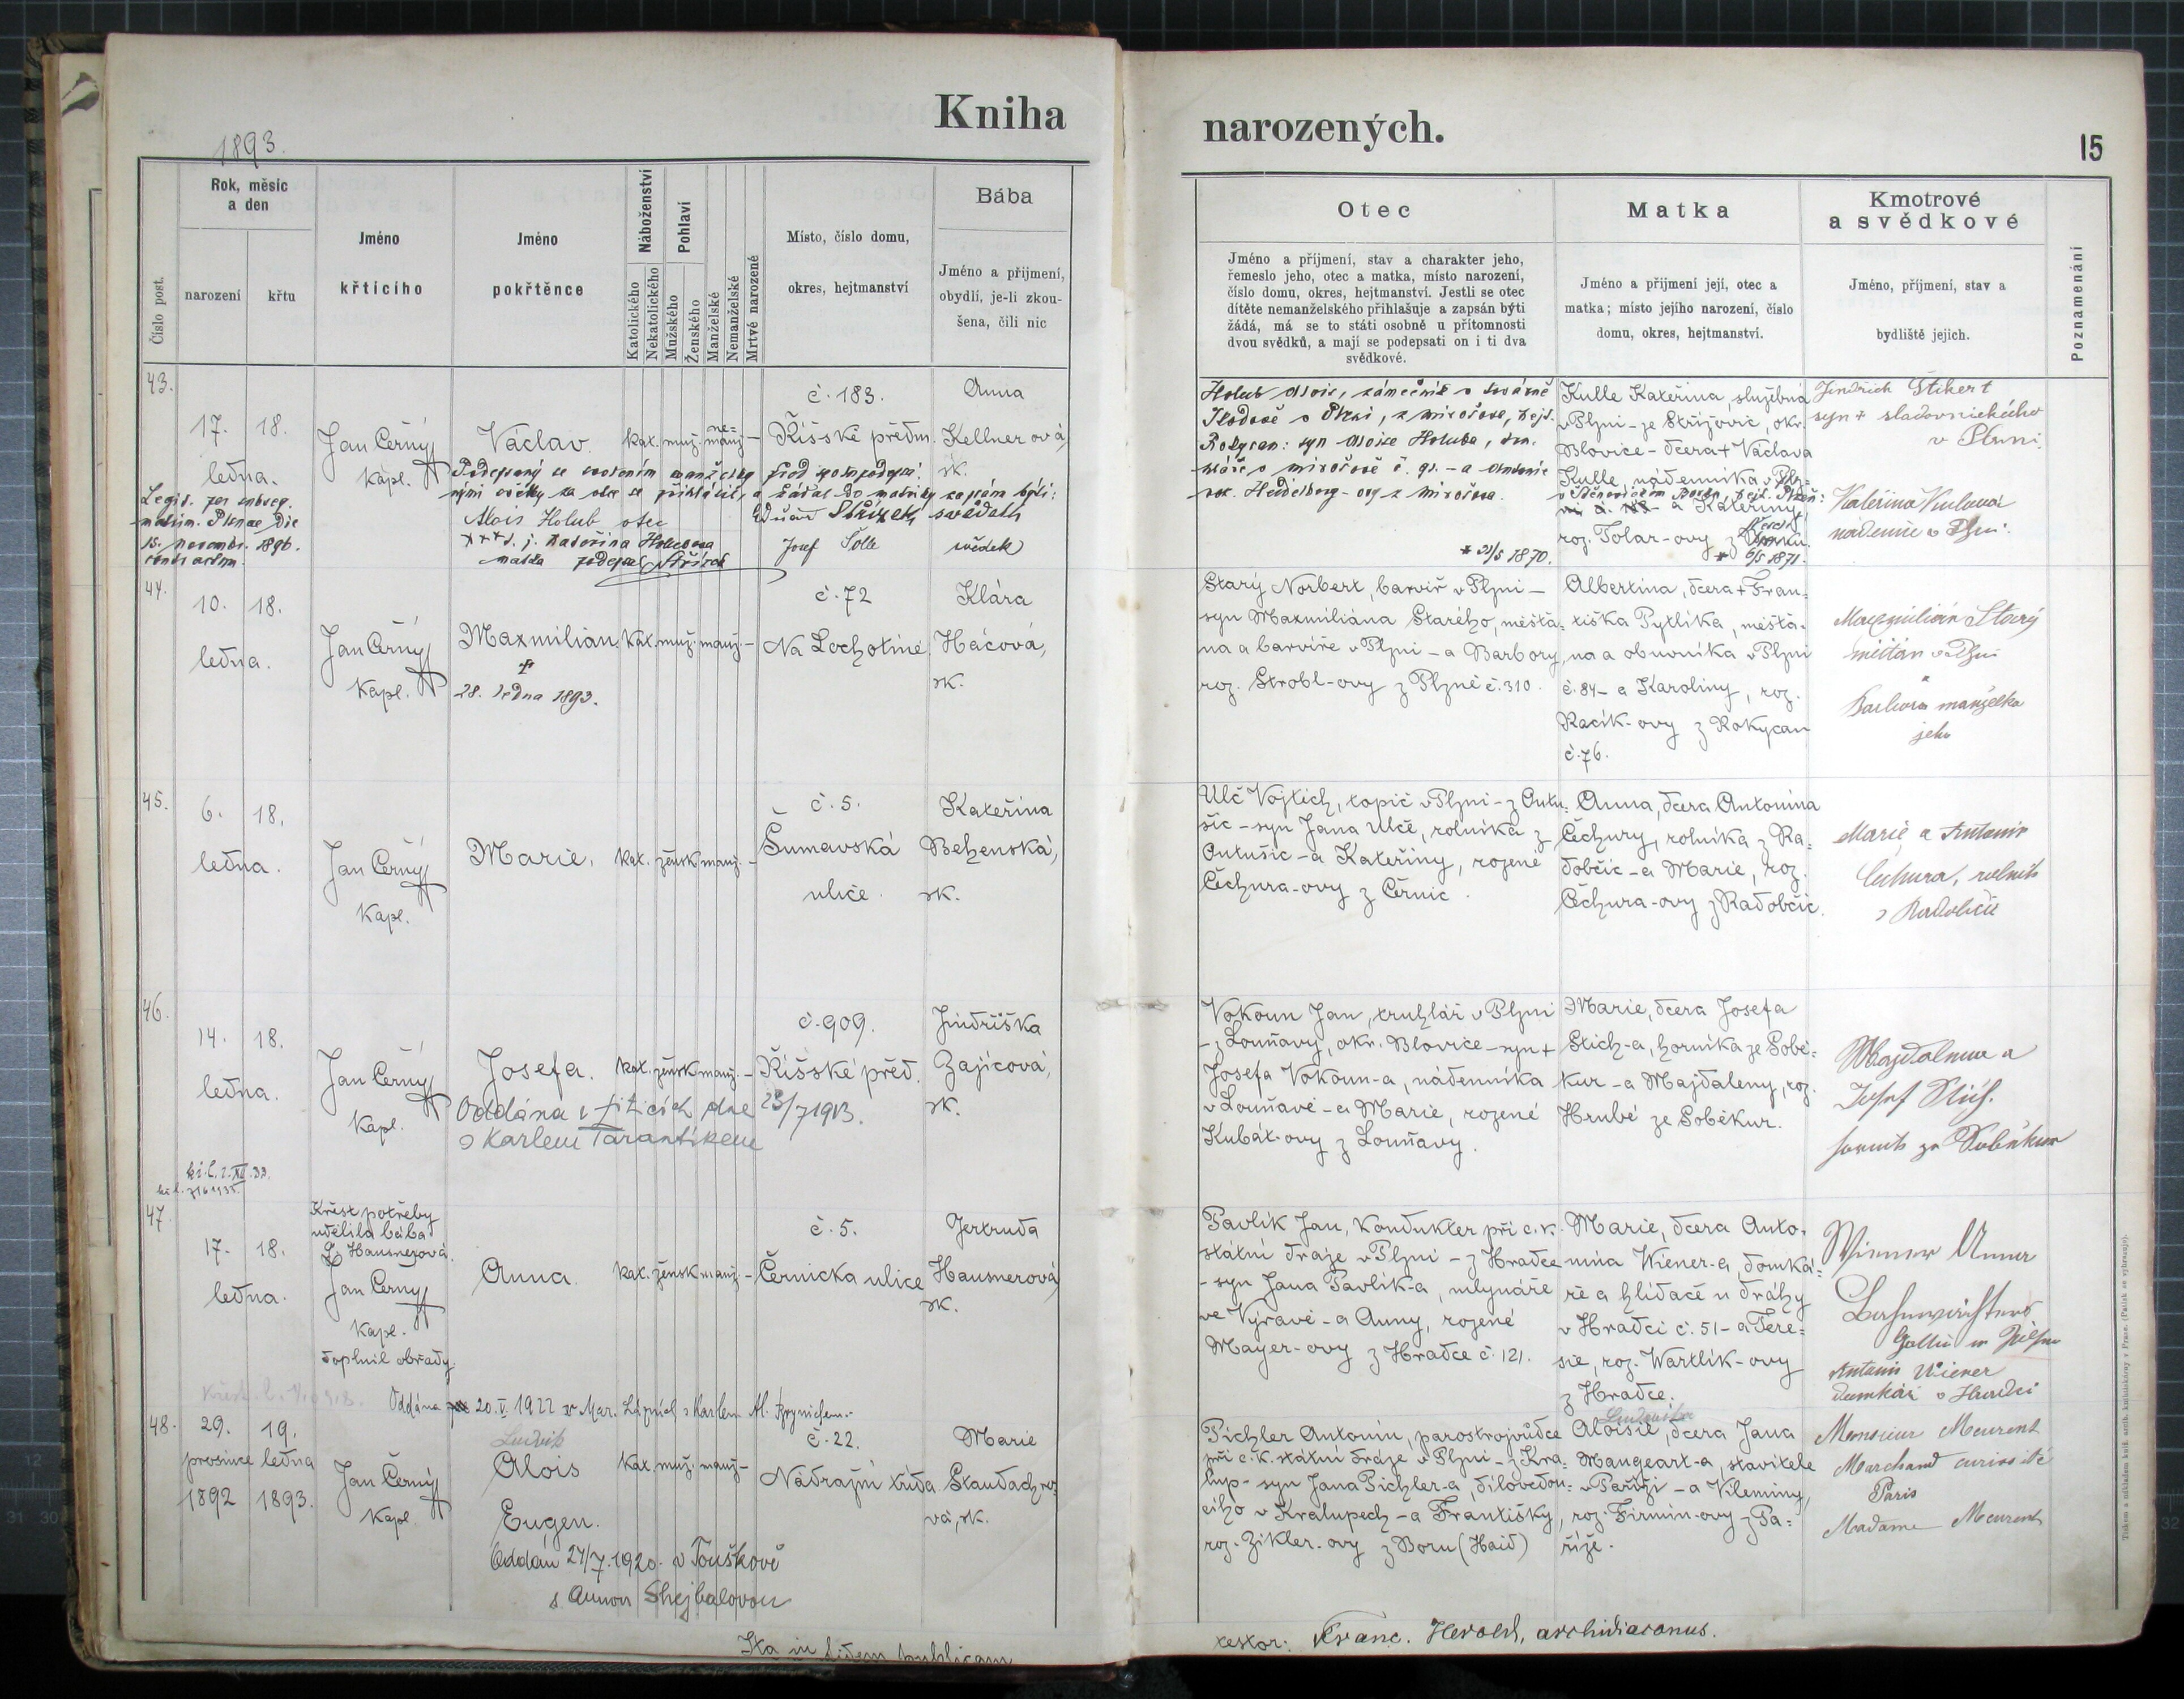 Kniha
narozených.
15
1893.
Číslo post.
Rok, měsíc
a den
narození
křtu
Jméno
křticího
Jméno
pokřtěnce
Náboženství
Katolického
Nekatolického
Pohlaví
Mužského
Ženského
Manželské
Nemanželské
Mrtvé narozené
Místo, číslo domu,
okres, hejtmanství
Bába
Jméno a přijmení,
obydlí, je-li zkou-
šena, čili nic
Otec
Jméno a příjmení, stav a charakter jeho,
řemeslo jeho, otec a matka, místo narození,
číslo domu, okres, hejtmanství. Jestli se otec
dítěte nemanželského přihlašuje a zapsán býti
žádá, má se to státi osobně u přítomnosti
dvou svědků, a mají se podepsati on i ti dva
svědkové.
Matka
Jméno a přijmení její, otec a
matka; místo jejího narození, číslo
domu, okres, hejtmanství.
Kmotrové
a svědkové
Jméno, příjmení, stav a
bydliště jejich.
Poznamenání
43.
17. 18.
ledna.
Jan Černý
kapl.
Václav.
kat. muž. ne=
manž –
č. 183.
Říšské předm.
Anna
Kellnerová,
zk.
Legit. per subseq.
matrim. Plsnae die
15. novembr. 1896.
contractum.
Podepsaný se svolením manželky před spolupodepsa=
nými svědky za otce se přihlásil, a žádal do matriky zapsán býti:
Alois Holub otec Eduard Střízek svědek
+++ s. j. Kateřina Holubova Josef Solle svědek
matka podepsal Střízek
Holub Alois, zámečník v továrně
Škodově v Plzni, z Mirošova, hejt.
Rokycan: syn Aloise Holuba,
v Mirošově č. 91. – a Antonie
roz. Heidelberg-ovy z Mirošova.
* 21/5 1870.
Kulle Kateřina, služebná
v Plzni – ze Střýžovic, okr.
Blovice – dcera + Václava
Kulle, nádenníka v Plz=
a Kateřiny,
roz. Tolar-ovy z
* 6/5 1871.
Jindrich Štikert
syn + sladovnického
v Plzni
Kateřina Kulova
nádenice v Plzni
44.
10. 18.
ledna.
Jan Černý
kapl.
Maxmilian
†
28. ledna 1893.
kat. muž. manž. –
č. 72
Na Lochotíně
Klára
Hácová,
zk.
Starý Norbert, barvíř v Plzni –
syn Maxmiliána Starého, měšťa=
na a barvíře v Plzni – a Barbory,
roz. Strobl-ovy z Plzně č. 310.
Albertina, dcera + Fran=
tiška Pytlíka, měšťa=
na a obuvníka v Plzni
č. 84 – a Karoliny, roz.
Racík-ovy z Rokycan
č. 76.
Maxmilián Starý
měšťan v Plzni
Barbora manželka
jeho
45.
6. 18.
ledna.
Jan Černý
kapl.
Marie.
kat. žensk. manž. –
č. 5.
Šumavská
ulice
Kateřina
Behenská,
zk.
Ulč Vojtěch, topič v Plzni – z Autu=
šic – syn Jana Ulče, rolníka z
Outušic – a Kateřiny, rozené
Čechura-ovy z Černic.
Anna, dcera Antonína
Čechury, rolníka z Ra=
dobčic – a Marie, roz.
Čechura-ovy z Radobčic.
Marie a Antonín
Čechura, rolník
z Radobčic
46.
14. 18.
ledna.
Jan Černý
kapl.
Josefa.
kat. žensk. manž. –
č. 909.
Říšské před.
Jindřiška
Zajícová,
zk.
Oddána v Jílicích dne 23/7 1913.
s Karlem Tarantíkem
Vokoun Jan, truhlář v Plzni
– z Louňavy, okr. Blovice – syn +
Josefa Vokoun-a, nádenníka
v Louňavě – a Marie, rozené
Kubát-ovy z Louňavy.
Marie, dcera Josefa
Stich-a, horníka ze Sobě=
kur – a Majdaleny, roz.
Hrubé ze Soběkur.
Magdalena a
Josef Stich.
hornik ze Soběkur
47.
17. 18.
ledna.
Křest potřeby
udělila bába
Hausnerová.
Jan Černý
kapl.
doplnil obřady.
Anna.
kat. žensk. manž. –
č. 5.
Černická ulice
Gertruda
Hausnerová,
zk.
Oddána 20.V.1922 v Mar. Lázních s Karlem Al.
Pavlík Jan, kondukter při c. k.
státní dráze v Plzni – z Hradce
– syn Jana Pavlík-a, mlynáře
ve Výravě – a Anny, rozené
Mayer-ovy z Hradce č. 121.
Marie, dcera Anto=
nína Wiener-a, domká=
ře a hlídače u dráhy
v Hradci č. 51 – a Tere=
sie, roz. Wartlík-ovy
z Hradce.
Wiener Anna
Bahnwächters
Gattin in Pilsen
Antonin Wiener
domkář v Hradci
48.
29. 19.
prosince ledna
1892 1893.
Jan Černý
kapl.
Ludvík
Alois
Eugen.
kat. muž. manž –
č. 22.
Nádražní třída
Marie
Staudachro=
vá, zk.
Oddán 24/7.1920. v Touškově
s Annou Shejbalovou
Pichler Antonín, parostrojvůdce
při c. k. státní dráze v Plzni – z Kra=
lup – syn Jana Pichler-a, dílovedou=
cího v Kralupech – a Františky,
roz. Zikler-ovy z Boru (Haid)
Ludovika
Aloisie, dcera Jana
Mangeart-a, stavitele
v Paříži – a Vilemíny,
roz. Firmin-ovy z Pa=
říže.
Monsieur Meurent
Marchand curiosité
Paris
Madame Meurent
Ita in fidem publicam
testor: Franc. Herold, archidiaconus.